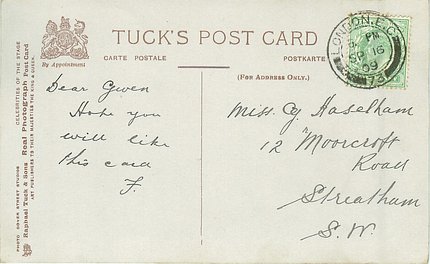 TUCK'S POST CARD
CARTE POSTALE
POSTKARTE
(FOR ADDRESS ONLY.)
By Appointment
LONDON. E.C.
PM
SP 16
09
73
Dear Gwen
Hope you
will like
this card
F.
Miss. G. Haselham
12 Moorcroft
Road
Streatham
S.W.
PHOTO DOVER STREET STUDIOS
Raphael Tuck & Sons Real Photograph Post Card
CELEBRITIES OF THE STAGE
ART PUBLISHERS TO THEIR MAJESTIES THE KING & QUEEN.